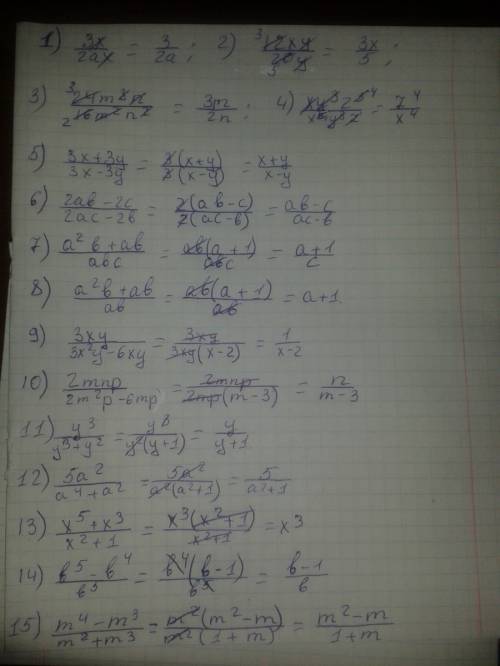 1) 3x/2ax = 3/2a; 2) ³12xy/20y ₅ = 3x/5;
3) ³24m²n/₂16m²n² = 3m/2n; 4) = z⁴/x⁴
5) 3x+3y/3x-3y = 3(x+y)/3(x-y) = x+y/x-y
6) 2ab-2c/2ac-2b = 2(ab-c)/2(ac-b) = ab-c/ac-b
7) a²b+ab/abc = ab(a+1)/abc = a+1/c
8) a²b+ab/ab = ab(a+1)/ab = a+1
9) 3xy/3x²y-6xy = 3xy/3xy(x-2) = 1/x-2
10) 2mnp/2m²p-6mp = 2mnp/2mp(m-3) = n/m-3
11) y³/y³+y² = y³/y²(y+1) = y/y+1
12) 5a²/a⁴+a² = 5a²/a²(a²+1) = 5/a²+1
13) x⁵+x³/x²+1 = x³(x²+1)/x²+1 = x³
14) b⁵-b⁴/b⁵ = b⁴(b-1)/b⁵ = b-1/b
15) m⁴-m³/m²+m³ = m²(m²-m)/m²(1+m) = m²-m/1+m